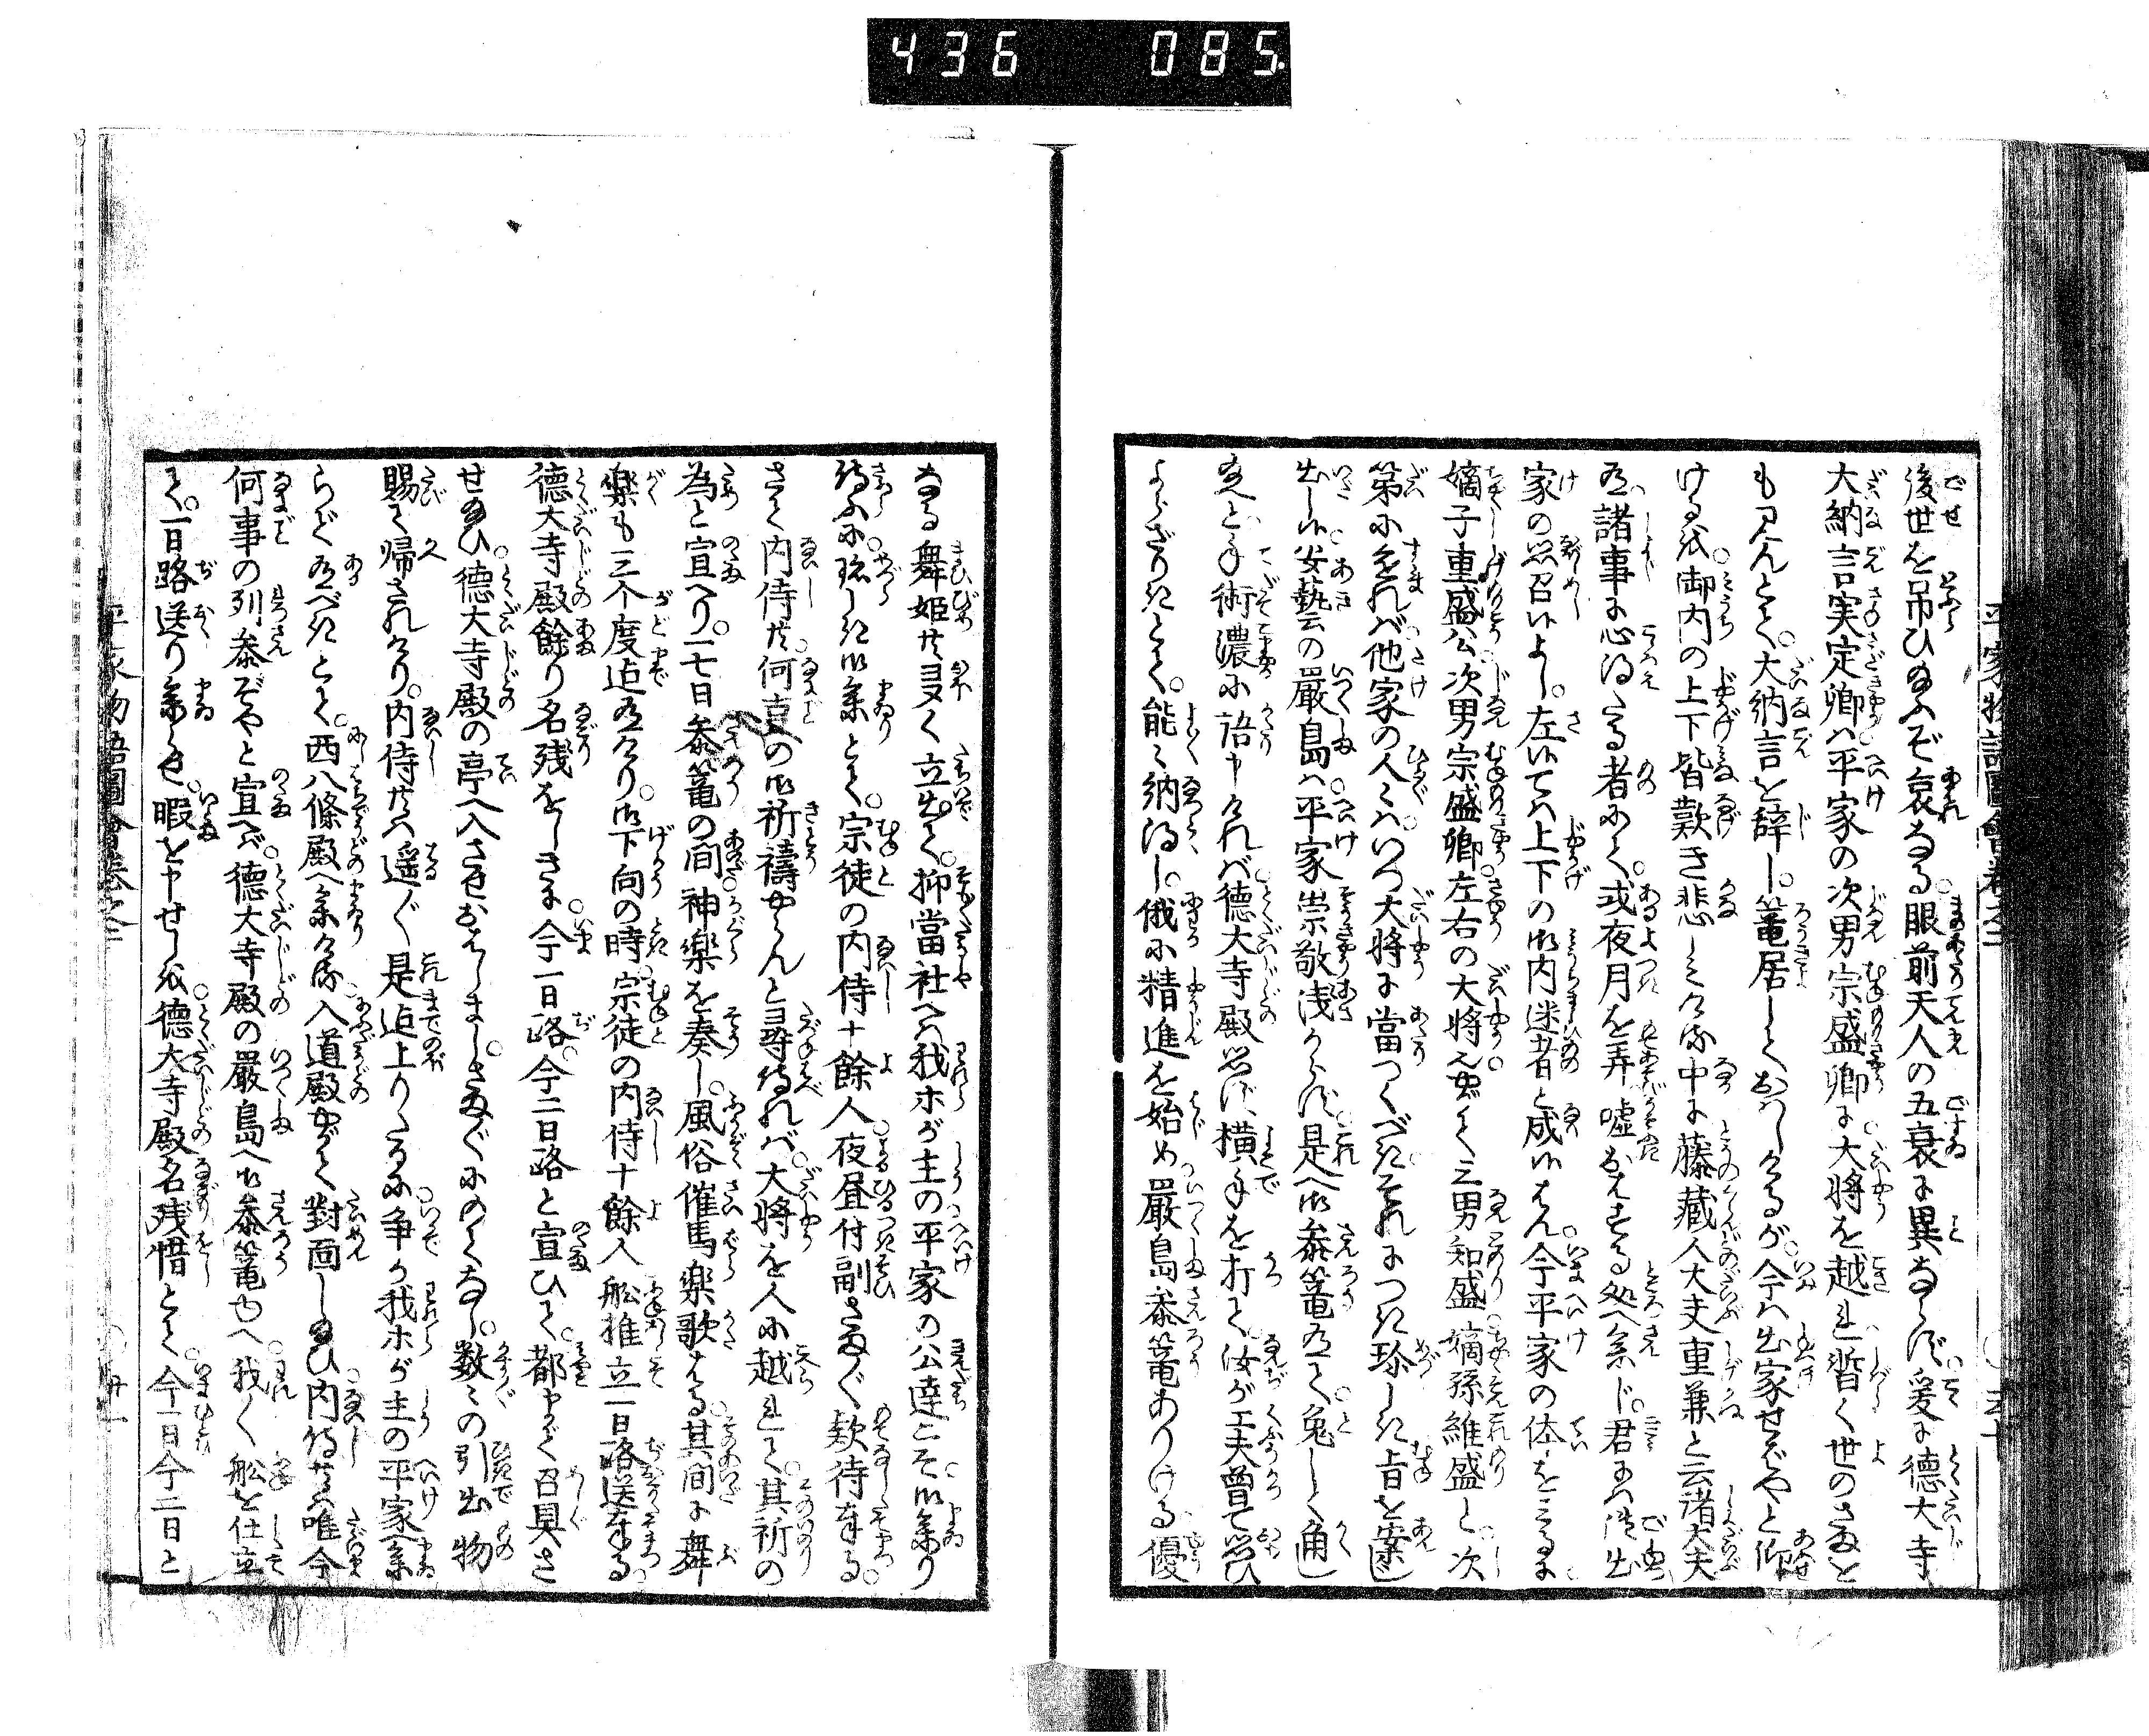 436 085.
後世を吊ひ給ふぞ哀なる。眼前天人の五衰に異ならず。爰に徳大寺
大納言実定卿ハ平家の次男宗盛卿に大将を越され暫く世のさまを
も見んとて。大納言を辞し。篭居しておハしけるが。今ハ出家せばやと仰
ける気。御内の上下皆歎き悲しミける中に藤蔵人大夫重兼と云諸大夫
有。諸事に心得たる者にて。或夜月を弄嘯おはする処へ参じ。君にハ御出
家の思召れよし。左候てハ上下の御内迷者と成候はん。今平家の体をミるに
嫡子重盛公次男宗盛卿。左右の大将にて三男知盛。嫡孫維盛と。次
第にすすまれバ他家の人々ハいつ大将に當つくべきそれにつき珍しき旨を案じ
出し候。安藝の厳島ハ平家崇敬浅からず。是へ御参篭有て。兎しく角し
玉へと。手術濃に語申けれバ。徳大寺殿思はず横手を打て。汝が工夫曾て思ひ
よらざりきとて。能々納得し。俄に精進を始め。厳島参篭ありける優
なる舞姫共多く立出て。抑當社へハ我ホが主の平家の公達こそ御参り
候ふに珍しき御参とて。宗徒の内侍十餘人。夜昼付副さまざま歎待奉る。
さて内侍共。何事の御祈禱やらんと尋候れバ。大将を人に越されて。其祈の
為と宣へり。一七日参篭の間神楽を奏し。風俗催馬楽歌はる。其間に舞
楽も三个度迠有けり。御下向の時宗徒の内侍十餘人舩推立一日路送奉る。
徳大寺殿餘り名残をしきに。今一日路。今二日路と宣ひて。都まで召具さ
せ給ひ。徳大寺殿の亭へ入させおはしまし。さまざまにのてなし。数々の引出物
賜て帰されけり。内侍共ハ遥々是迠上りたるに。争か我ホが主の平家へ参
らで有べきとて。西八條殿へ参ける。入道殿やがて對面し給ひ。内侍共ハ唯今
何事の列参ぞやと宣へば。徳大寺殿の厳島へ御参篭由へ。我々舩を仕立
て。一日路送り参らせ。暇を申せしを。徳大寺殿名残惜とて。今一日今二日と
平家物語圖會巻之二